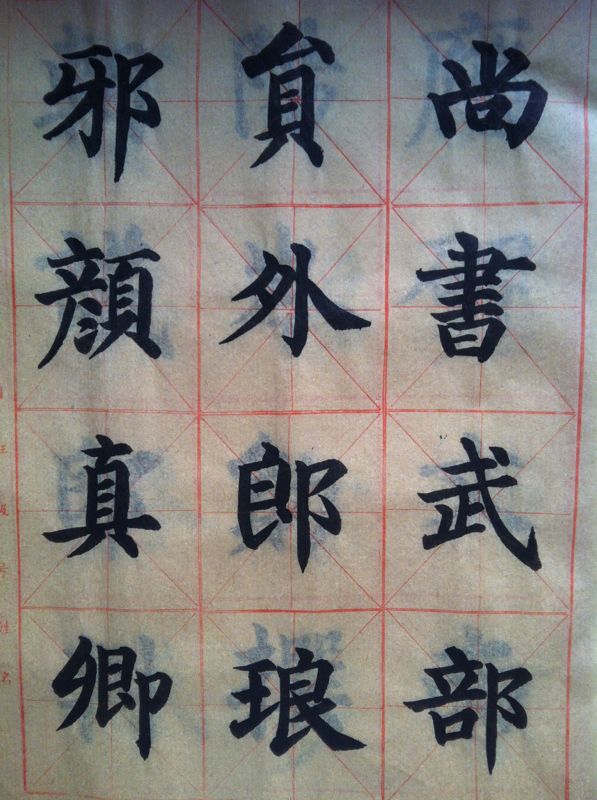 尚書武部
貟外郎琅
邪顔真卿